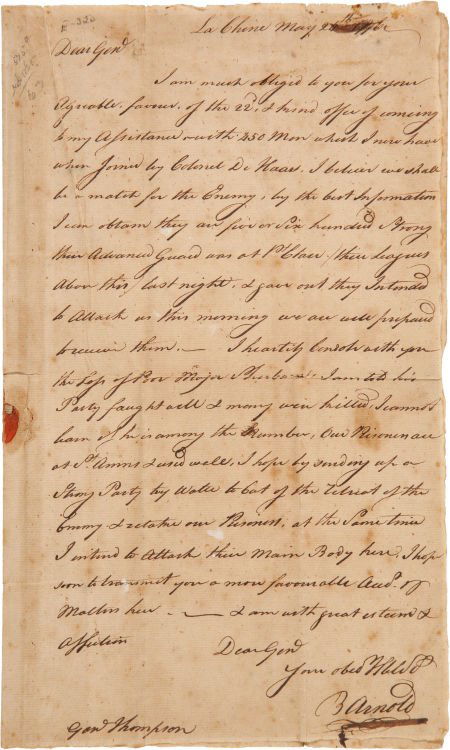 La Chine May 25th 1776
Dear Genl
I am much obliged to you for your
Agreable favour of the 22d, & kind offer of coming
to my Assistance with 450 Men which I now have
when Joined by Colonel De Haas, I believe we shall
be a match for the Enemy, by the best Information
I can obtain they are five or Six hundred Strong
their Advanced Guard was at Pt Clare (three Leagues
Above this) last night, & gave out they Intended
to Attack us this morning we are well prepared
to receive them. — I heartily Condole with you
the Loss of Poor Major Sherburne I am told his
Party fought well & many were killed, I cannot
learn if he is among the Number, Our Prisoners are
at St Anns & used well, I hope by sending up a
Strong Party by Water to Cut of the Retreat of the
Enemy & retake our Prisoners, at the Same time
I intend to Attack their Main Body here, I hope
soon to transmit you a more favourable Acct. of
Matters here — & am with great esteem &
affection
Dear Genl
Your obedt Hble St
B Arnold
Genl Thompson